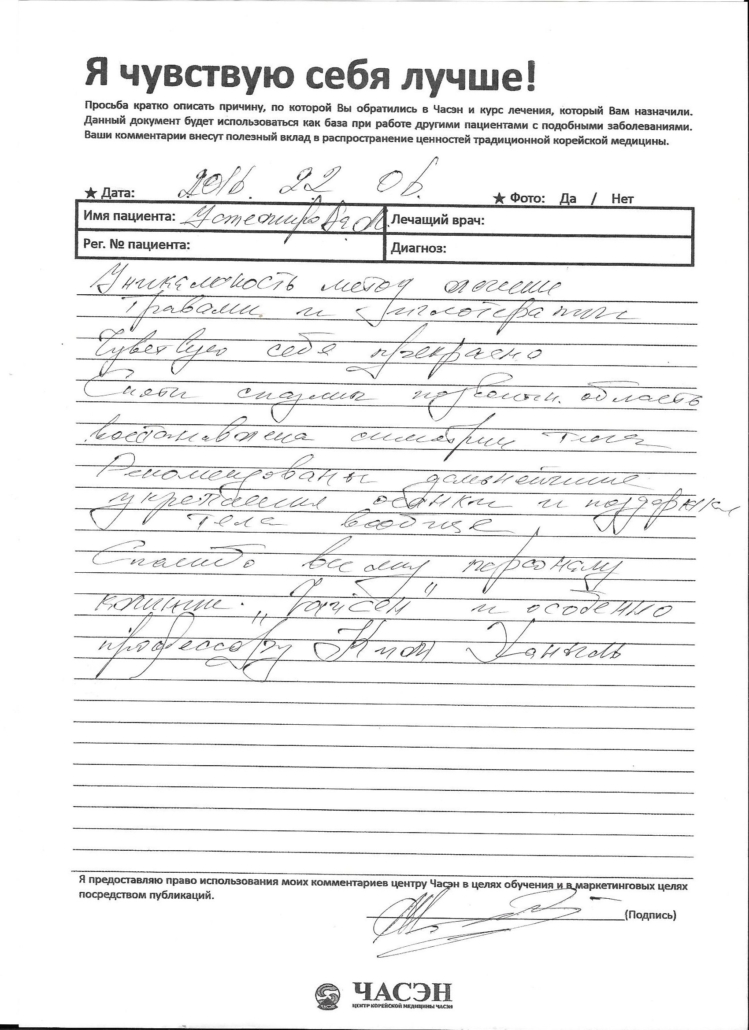 Я чувствую себя лучше!
Просьба кратко описать причину, по которой Вы обратились в Часэн и курс лечения, который Вам назначили.
Данный документ будет использоваться как база при работе другими пациентами с подобными заболеваниями.
Ваши комментарии внесут полезный вклад в распространение ценностей традиционной корейской медицины.
★ Дата: 2016. 22 06. ★ Фото: Да / Нет
Имя пациента: Лечащий врач:
Рег. № пациента: Диагноз:
Уникальность метод лечение
травами и
Чувствую себя прекрасно
Сняты спазмы область
востановлена симетрии тела
Рекомендованы дальнейшие
укрепления осанки и
тела вообще
Спасибо всему персоналу
клиники и особенно
профессору Ким
Я предоставляю право использования моих комментариев центру Часэн в целях обучения и в маркетинговых целях
посредством публикаций.
(Подпись)
ЧАСЭН
ЦЕНТР КОРЕЙСКОЙ МЕДИЦИНЫ ЧАСЭН